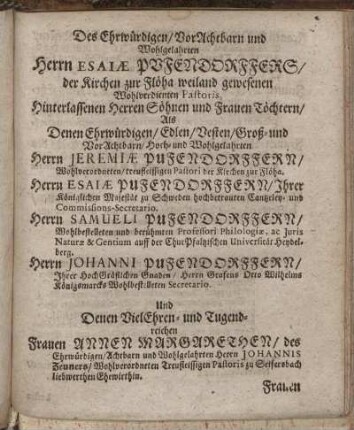 Des Ehrwürdigen/ VorAchtbarn und
Wohlgelahrten
Herrn ESAIÆ PVFENDORFFERS/
der Kirchen zur Flöha weiland gewesenen
Wohlverdienten Pastoris,
Hinterlassenen Herren Söhnen und Frauen Töchtern/
Als
Denen Ehrwürdigen/ Edlen/ Vesten/ Groß- und
VorAchtbarn/ Hoch- und Wohlgelahrten
Herrn JEREMIÆ PUFENDORFFERN/
Wohlverordneten/ treufleissigen Pastori der Kirchen zur Flöha.
Herrn ESAIÆ PUFENDORFFERN/ Ihrer
Königlichen Majestät zu Schweden hochbetrauten Cantzley- und
Commissions-Secretario.
Herrn SAMUELI PUFENDORFFERN/
Wohlbestelleten und berühmten Professori Philologiæ, ac Juris
Naturæ & Gentium auff der ChurPfaltzischen Universität Heydel-
berg.
Herrn JOHANNI PUFENDORFFERN/
Ihrer HochGräflichen Gnaden/ Herrn Grafens Otto Wilhelms
Königsmarcks Wohlbestelleten Secretario.
Und
Denen VielEhren- und Tugend-
reichen
Frauen ANNEN MARGARETHEN/ des
Ehrwürdigen/ Achtbarn und Wohlgelahrten Herrn JOHANNIS
Fenners/ Wohlverordneten Treufleissigen Pastoris zu Seifersbach
liebwerthen Ehewirthin.
Frauen